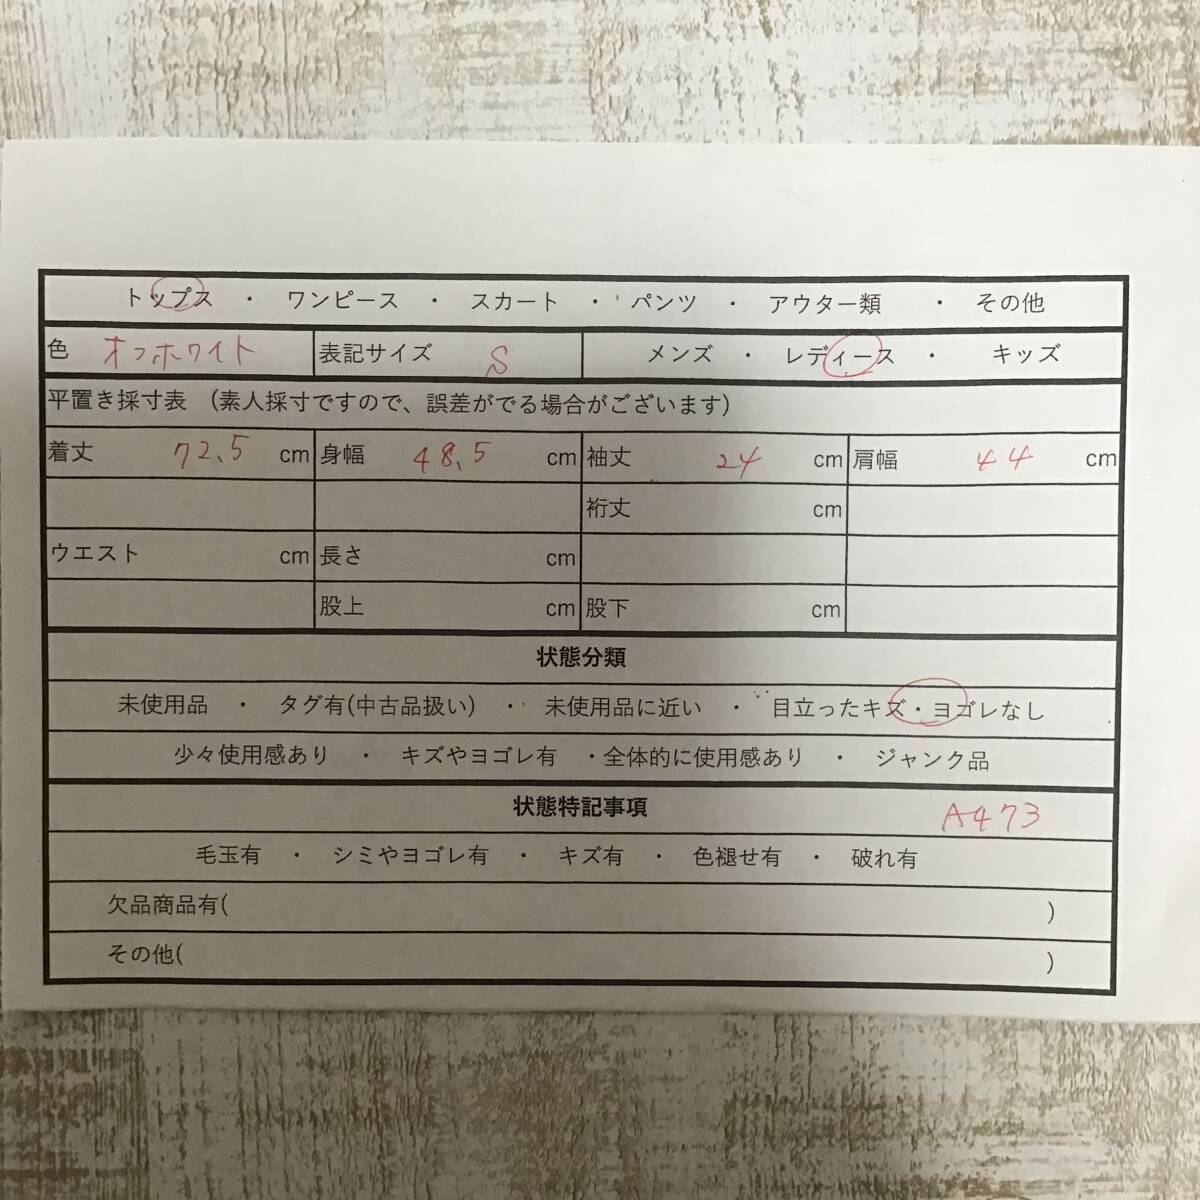 トップス ・ ワンピース ・ スカート ・ パンツ ・ アウター類 ・ その他
色 オフホワイト 表記サイズ S メンズ ・ レディース ・ キッズ
平置き採寸表 (素人採寸ですので、誤差がでる場合がございます)
着丈 72.5 cm 身幅 48.5 cm 袖丈 24 cm 肩幅 44 cm
裄丈 cm
ウエスト cm 長さ cm
股上 cm 股下 cm
状態分類
未使用品 ・ タグ有(中古品扱い) ・ 未使用品に近い ・ 目立ったキズ・ヨゴレなし
少々使用感あり ・ キズやヨゴレ有 ・全体的に使用感あり ・ ジャンク品
状態特記事項 A473
毛玉有 ・ シミやヨゴレ有 ・ キズ有 ・ 色褪せ有 ・ 破れ有
欠品商品有( )
その他( )